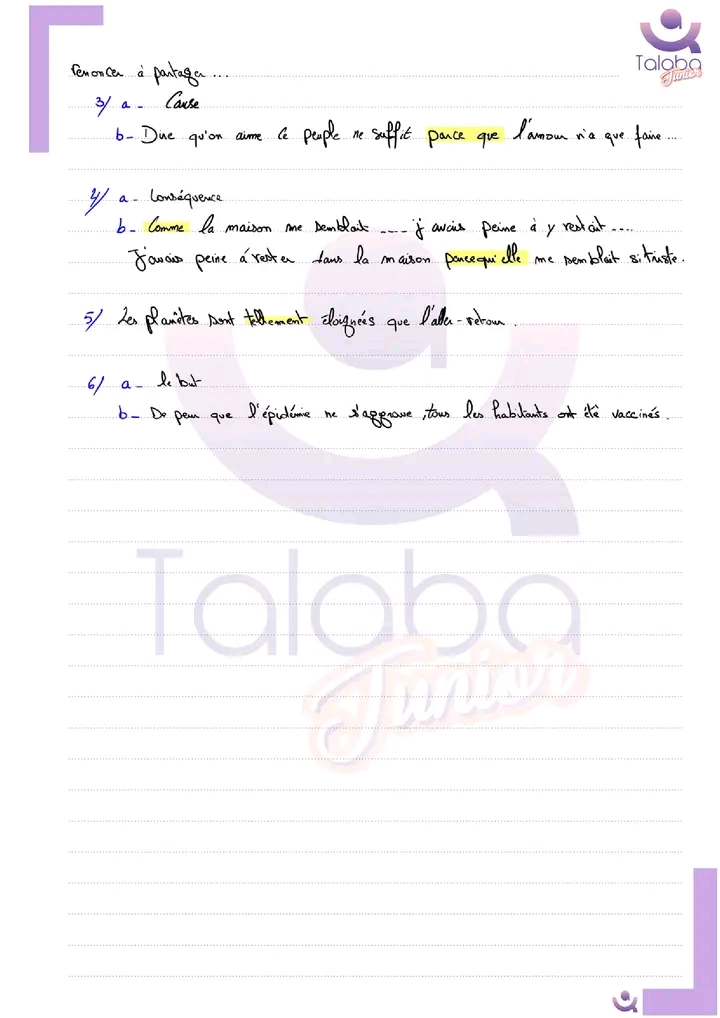 Talaba
Junior
renoncer à partager ...
3/ a - Cause
b - Dire qu'on aime le peuple ne suffit parce que l'amour n'a que faire ...
4/ a - Conséquence
b - Comme la maison me semblait .... j'avais peine à y restait ....
J'avais peine à rester dans la maison parcequ'elle me semblait si triste.
5/ Les planètes sont tellement éloignées que l'aller-retour .
6/ a - le but
b - De peur que l'épidémie ne s'aggrave , tous les habitants ont été vaccinés .
Talaba
Junior